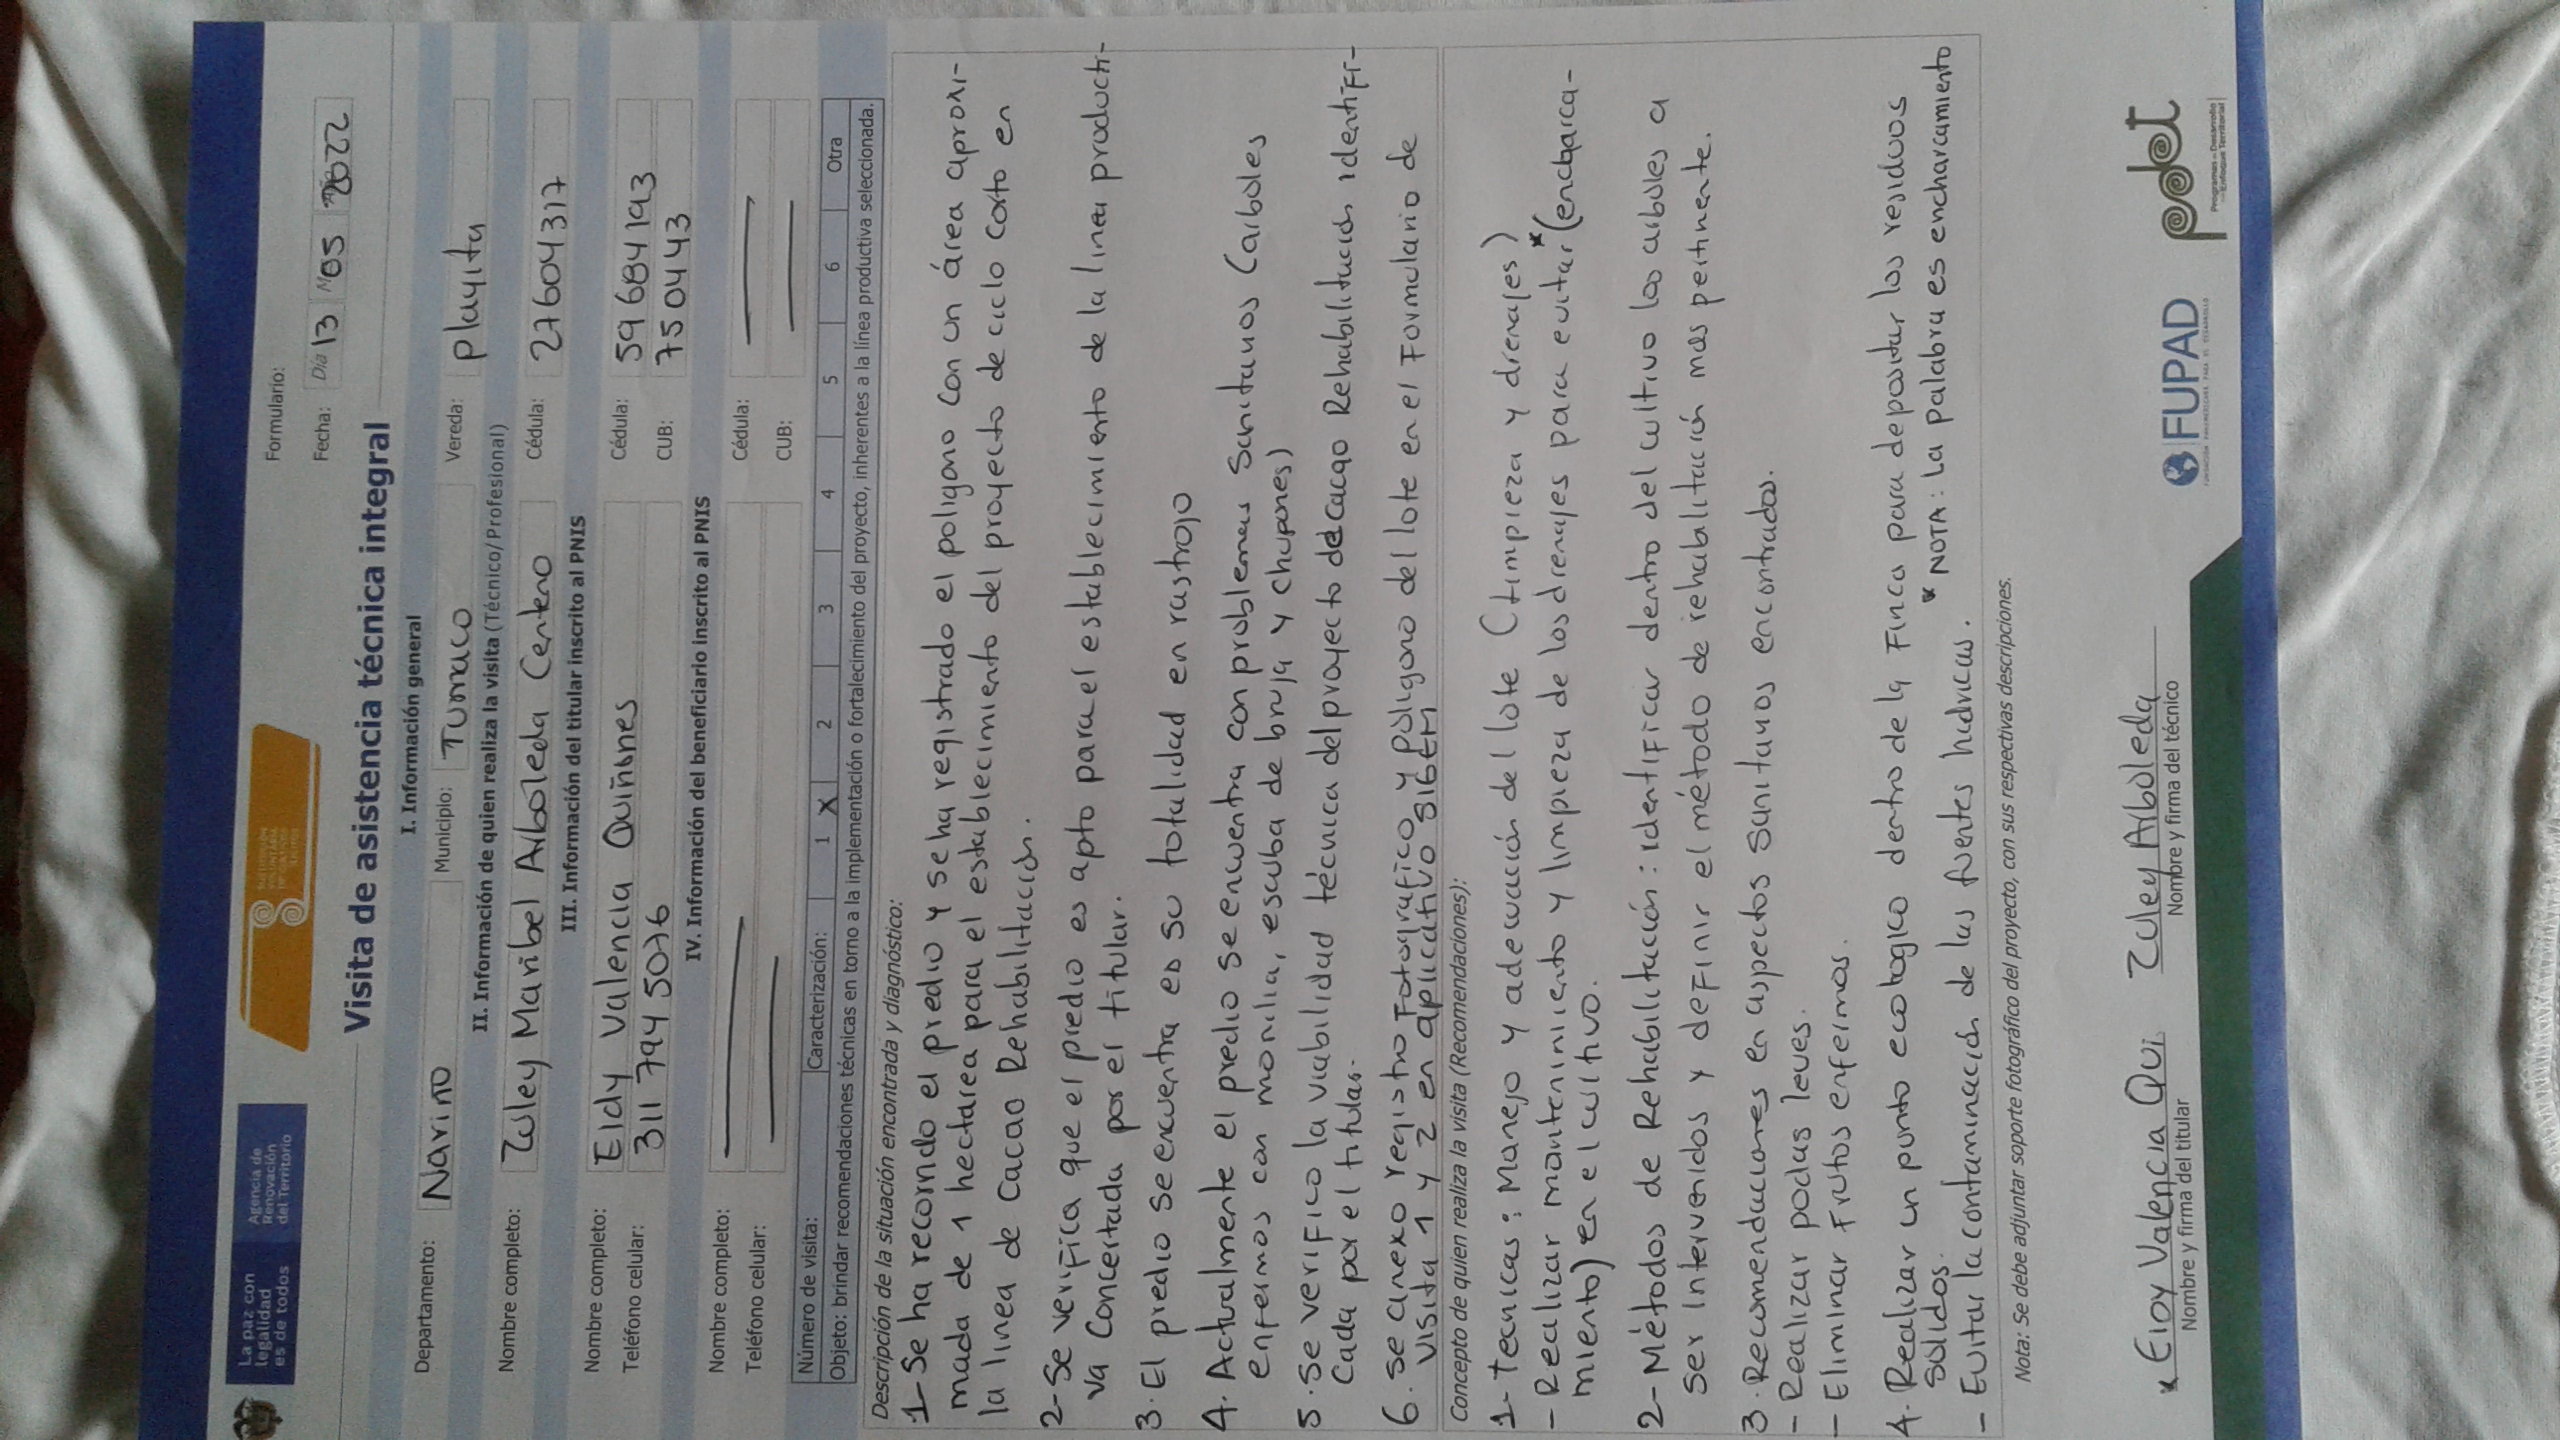 La paz con
legalidad
es de todos
Agencia de
Renovación
del Territorio
SUSTITUCIÓN
VOLUNTARIA
Formulario:
Visita de asistencia técnica integral
Fecha: Día 13 Mes 05 Año 2022
I. Información general
Departamento: Nariño Municipio: Tumaco Vereda: playita
II. Información de quien realiza la visita (Técnico/Profesional)
Nombre completo: Zuley Maribel Arboleda Centeno Cédula: 27604317
III. Información del titular inscrito al PNIS
Nombre completo: Eldy Valencia Quiñones Cédula: 59684193
Teléfono celular: 311 794 5076 CUB: 750443
IV. Información del beneficiario inscrito al PNIS
Nombre completo: Cédula:
Teléfono celular: CUB:
Número de visita: Caracterización: 1 X 2 3 4 5 6 Otra
Objeto: brindar recomendaciones técnicas en torno a la implementación o fortalecimiento del proyecto, inherentes a la línea productiva seleccionada.
Descripción de la situación encontrada y diagnóstico:
1- Se ha recorrido el predio y se ha registrado el poligono con un área aproxi-
mada de 1 hectárea para el establecimiento del proyecto de ciclo corto en
la linea de Cacao Rehabilitación.
2- Se verifica que el predio es apto para el establecimiento de la linea producti-
va Concertada por el titular.
3. El predio se encuentra en su totalidad en rastrojo
4. Actualmente el predio se encuentra con problemas sanitarios (arboles
enfermos con monilia, escuba de bruja y chupones)
5. se verifico la viabilidad técnica del proyecto de Cacao Rehabilitación identifi-
cada por el titular.
6. se anexo registro Fotografico y poligono del lote en el Formulario de
visita 1 y 2 en aplicativo SIGETI
Concepto de quien realiza la visita (Recomendaciones):
1- tecnicas: Manejo y adecuación del lote (timpieza y drenajes)
- Realizar mantenimiento y limpieza de los drenajes para evitar *(encharca-
miento) en el cultivo.
2- Métodos de Rehabilitación: identificar dentro del cultivo los arboles a
ser intervenidos y definir el método de rehabilitación mas pertinente.
3. Recomendaciones en aspectos sanitarios encontrados.
- Realizar podas leves.
- Eliminar Frutos enfermos.
4. Realizar un punto ecologico dentro de la Finca para depositar los residuos
solidos.
- Evitar la contaminación de las fuentes hidricas. * NOTA: La palabra es encharcamiento
Nota: Se debe adjuntar soporte fotográfico del proyecto, con sus respectivas descripciones.
x Eloy Valencia Qui.
Nombre y firma del titular
Zuley Arboleda
Nombre y firma del técnico
FUPAD
pdet
Programas de Desarrollo
con Enfoque Territorial